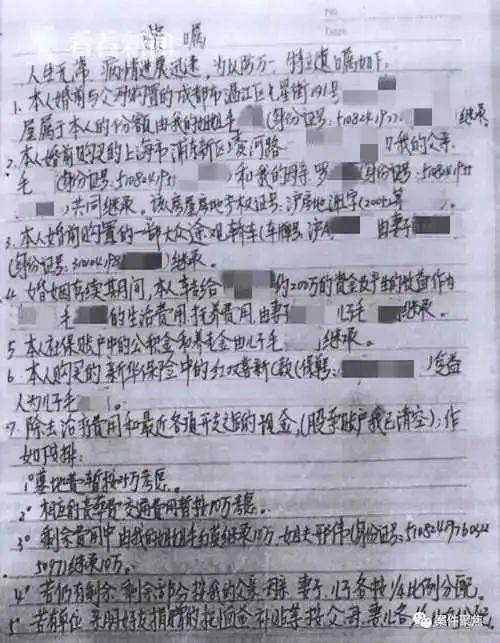 看看新闻
遗嘱
No
Date
人生无常 病情进展迅速,为以防万一,特立遗嘱如下。
1. 本人婚前与父母购置的成都市温江区 七星街191号
屋属于本人的份额由我的姐姐毛 (身份证号:510824197 )继承。
2. 本人婚前购买的上海市浦东新区 黄河路 由我的父亲
毛 (身份证号:51082419 )和我的母亲罗 (身份证号:51082419
)共同继承。该房屋房地产权证号:沪房地浦字(200 第
3. 本人婚前购置的一部大众途观轿车(车牌号,沪A 由妻子
(身份证号:310104198 )继承。
4. 婚姻存续期间,本人 给 约200万的资金及产生的收益作为
毛 的生活费用、抚养费用,由妻子 儿子毛 继承。
5 本人社保账户中的公积金和养老金由儿子毛 继承。
6 本人购买的新华保险中的 (保单号: )受益
人为儿子毛 。
7. 除去治疗费用和最近各项开支之后的现金,(股票账户我已清空);作
如下安排:
1° 墓地费暂按 万考虑。
2° 相应的丧葬费 交通费用暂按10万考虑。
3° 剩余费用中由我的姐姐毛 继承10万,姐夫邢伟(身份证号:
5097)继承10万。
4° 若仍有剩余 剩余部分按我的父亲 母亲 妻子 儿子各按1/4比例分配。
5° 若有单位 亲朋好友捐赠的抚恤金 补贴等按父 母 妻 儿各
案件聚焦